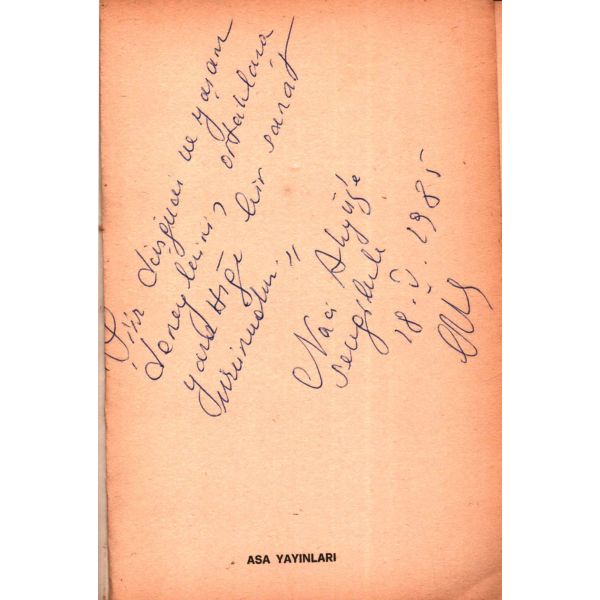 Şiir düşünce ve yaşam
deneylerinin, ortaklaşa
yarattığı bir sanat
ürünüdür."
Naci Akyüz'e
sevgilerle
18.V.1985
ASA YAYINLARI